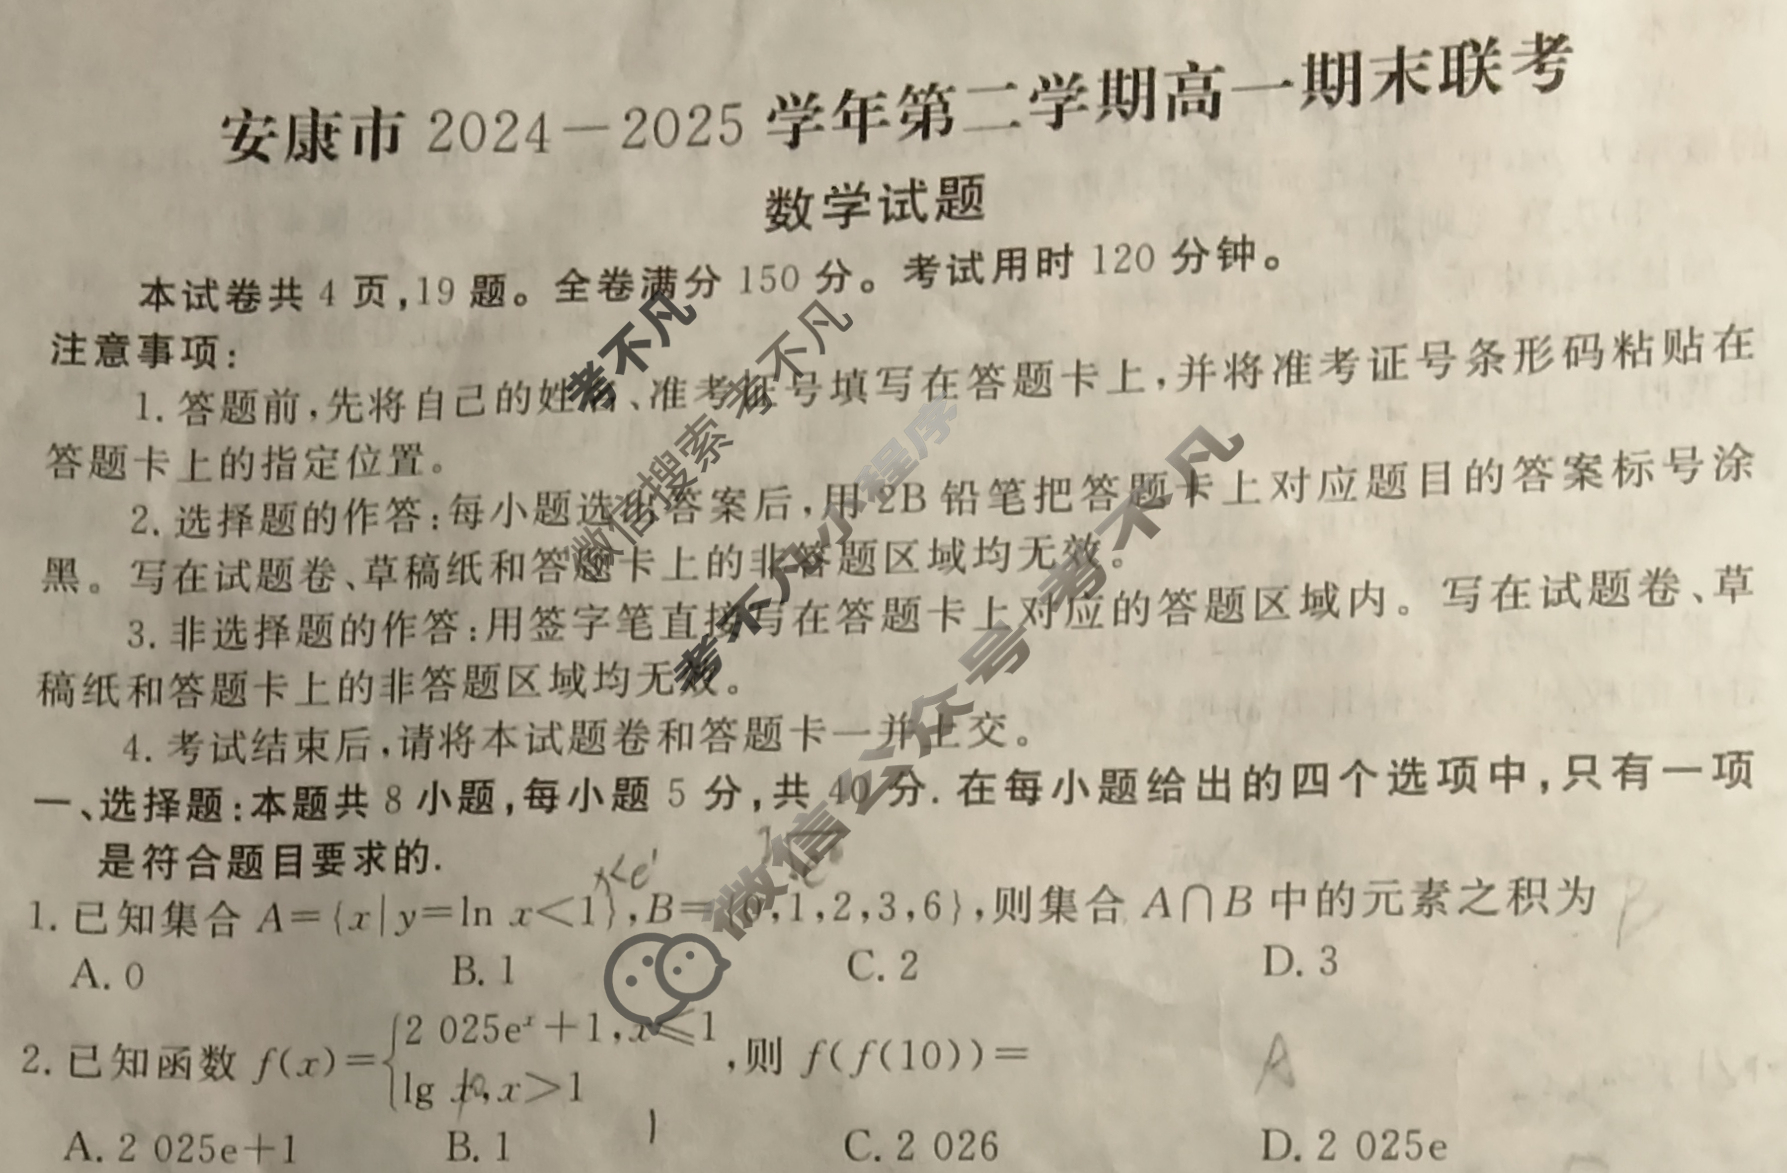 安康市2024—2025学年第二学期高一期末联考
数学试题
本试卷共4页,19题。全卷满分150分。考试用时120分钟。
注意事项:
1.答题前,先将自己的姓名、准考证号填写在答题卡上,并将准考证号条形码粘贴在
答题卡上的指定位置。
2.选择题的作答:每小题选出答案后,用2B铅笔把答题卡上对应题目的答案标号涂
黑。写在试题卷、草稿纸和答题卡上的非答题区域均无效。
3.非选择题的作答:用签字笔直接写在答题卡上对应的答题区域内。写在试题卷、草
稿纸和答题卡上的非答题区域均无效。
4.考试结束后,请将本试题卷和答题卡一并上交。
一、选择题:本题共8小题,每小题5分,共40分.在每小题给出的四个选项中,只有一项
是符合题目要求的.
x<e¹
1.已知集合A={x|y=ln x<1},B={0,1,2,3,6},则集合A∩B中的元素之积为 B
A.0 B.1 C.2 D.3
2.已知函数f(x)={2 025eˣ+1,x≤1
lg x,x>1 ,则f(f(10))= A
A.2 025e+1 B.1 C.2 026 D.2 025e
考不凡
微信搜索 考不凡
考不凡小程序
微信公众号 考不凡